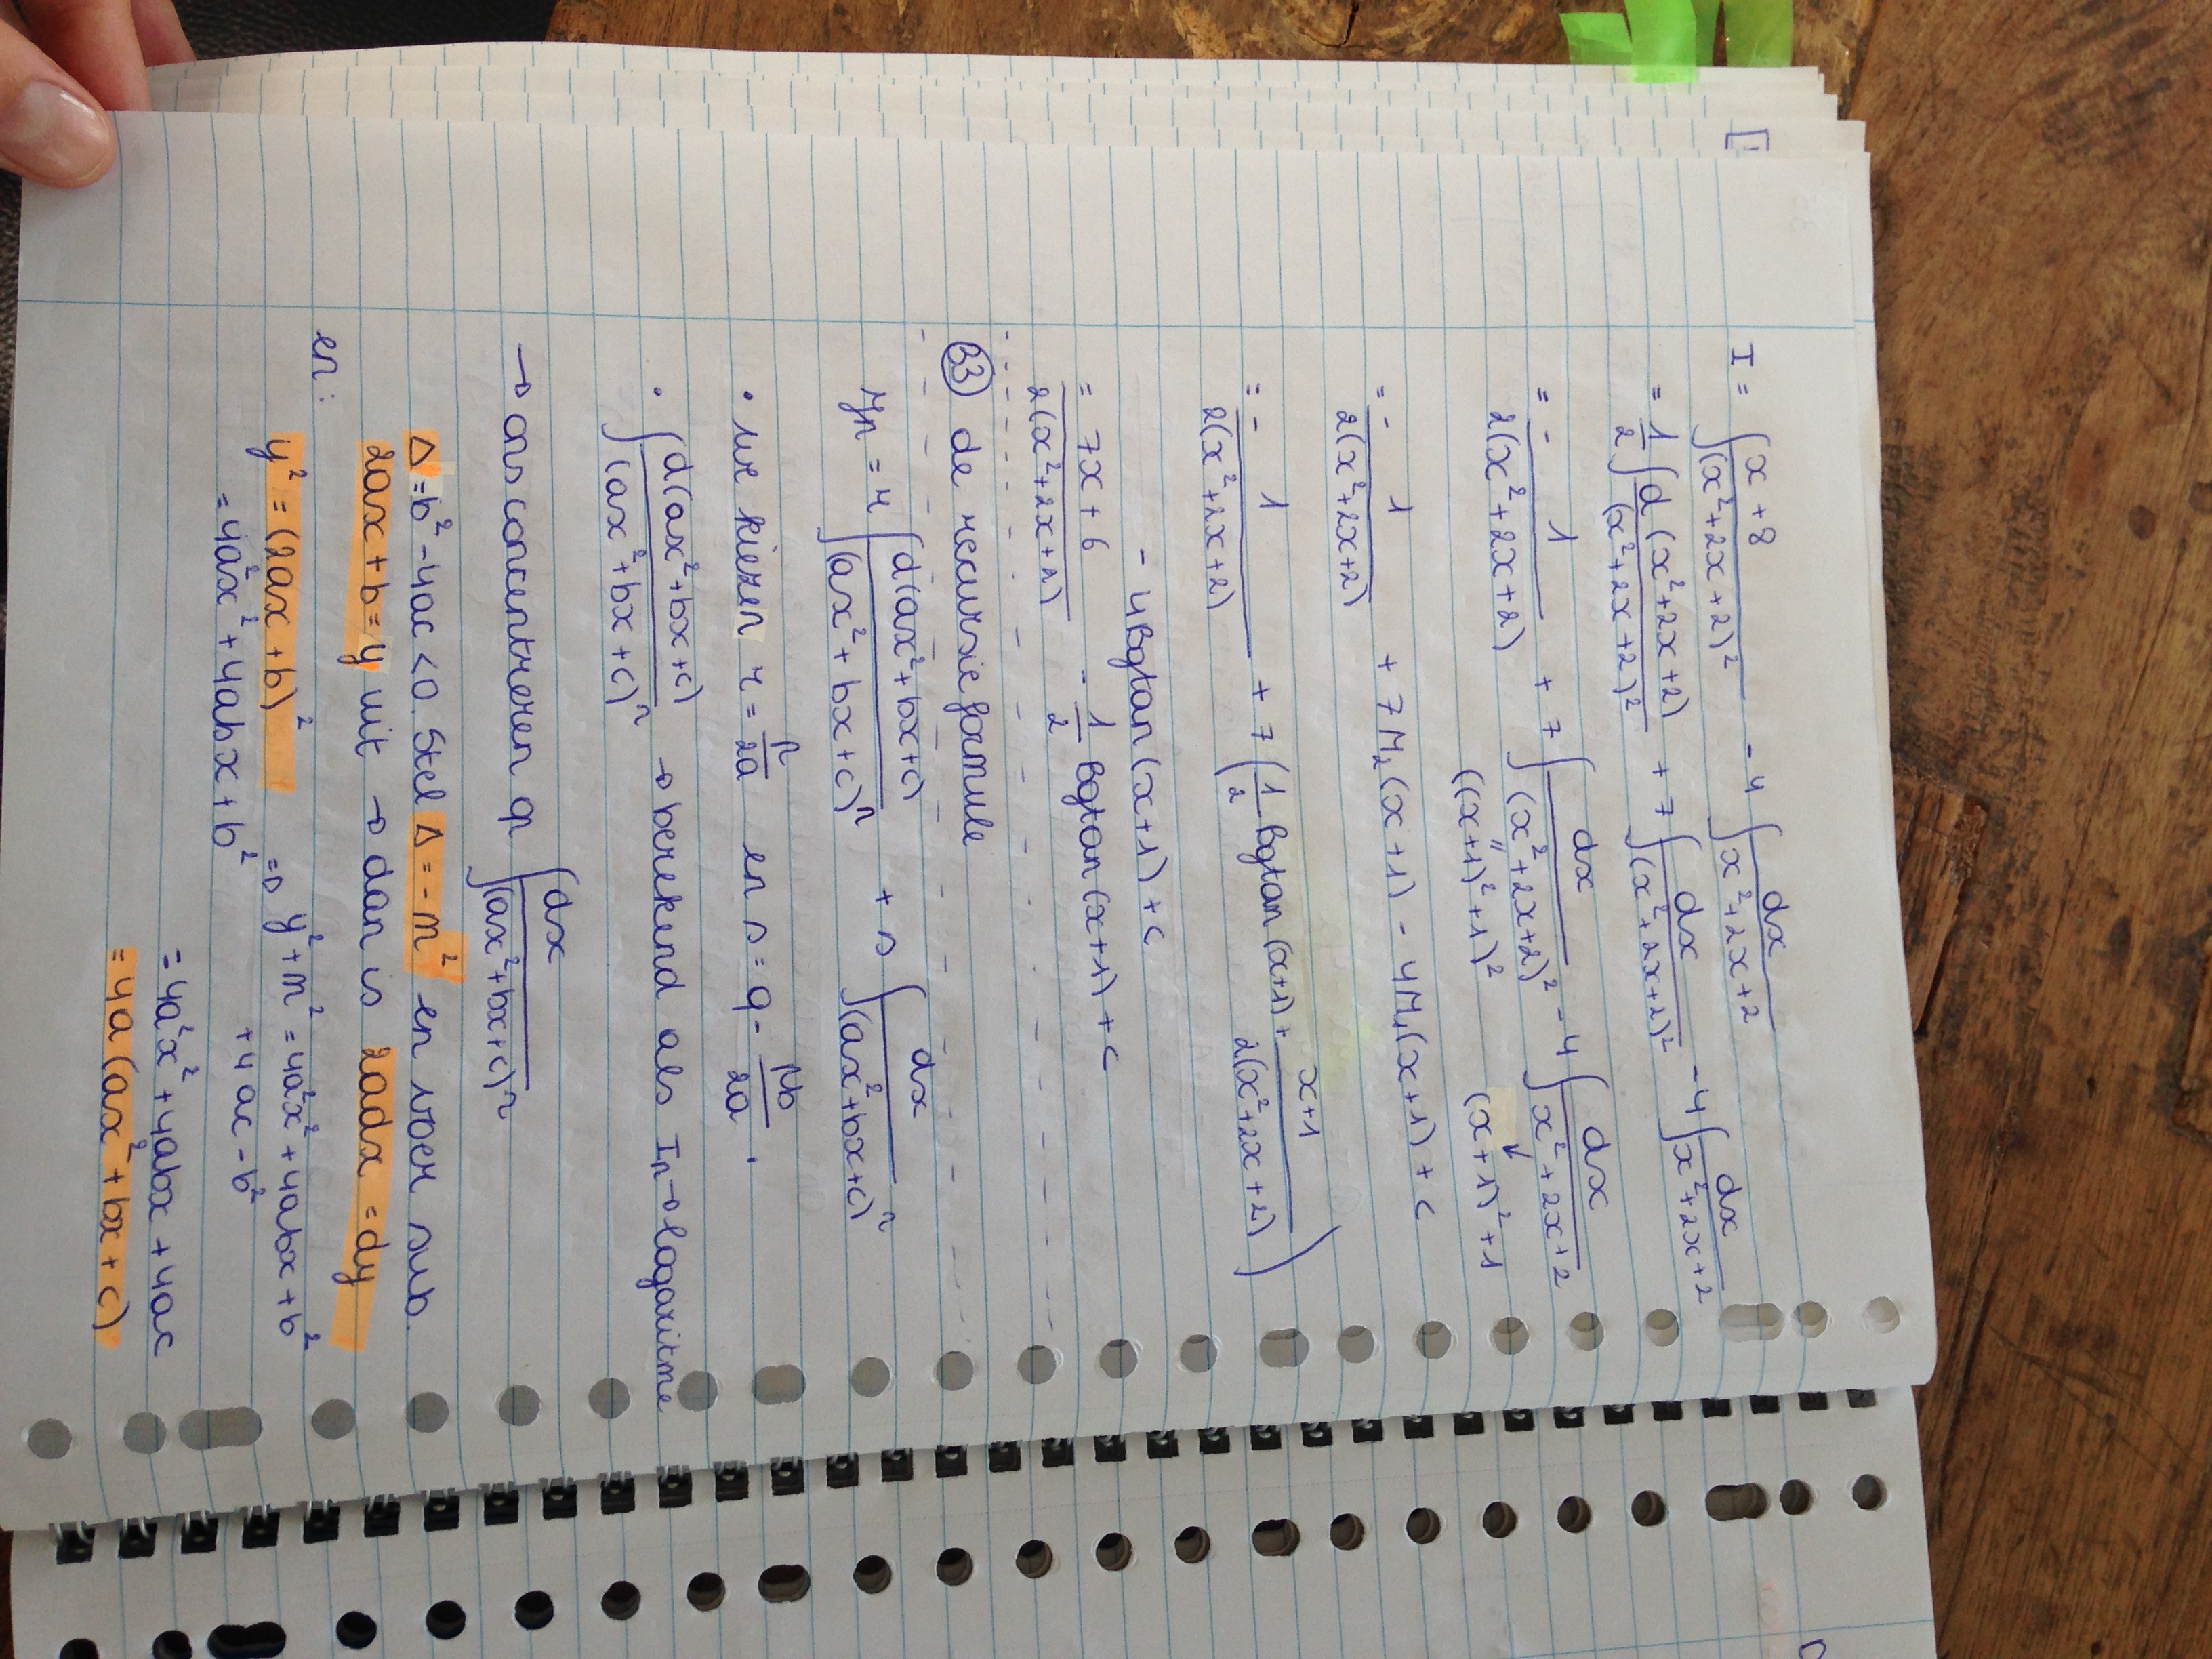 I = ∫ x+8 / (x²+2x+2)² - 4 ∫ dx / x²+2x+2
= 1/2 ∫ d(x²+2x+2) / (x²+2x+2)² + 7 ∫ dx / (x²+2x+2)² - 4 ∫ dx / x²+2x+2
= - 1 / 2(x²+2x+2) + 7 ∫ dx / (x²+2x+2)² - 4 ∫ dx / x²+2x+2
" ↙
((x+1)²+1)² (x+1)²+1
= - 1 / 2(x²+2x+2) + 7M₂(x+1) - 4M₁(x+1) + c
= - 1 / 2(x²+2x+2) + 7 (1/2 Bgtan (x+1) + x+1 / 2(x²+2x+2))
- 4Bgtan (x+1) + c
= 7x+6 / 2(x²+2x+2) - 1/2 Bgtan (x+1) + c
B3 de recursieformule
yn = r ∫ d(ax²+bx+c) / (ax²+bx+c)ⁿ + s ∫ dx / (ax²+bx+c)ⁿ
• we kiezen r = p/2a en s = q - pb/2a .
• ∫ d(ax²+bx+c) / (ax²+bx+c)ⁿ → berekend als In → logaritme
→ ons concentreren op ∫ dx / (ax²+bx+c)ⁿ
Δ = b² - 4ac < 0. Stel Δ = -m² en voer sub.
2ax + b = y uit → dan is 2adx = dy
en:
y² = (2ax+b)² ⇒ y²+m² = 4a²x² + 4abx + b²
= 4a²x² + 4abx + b² + 4ac - b²
= 4a²x² + 4abx + 4ac
= 4a (ax² + bx + c)